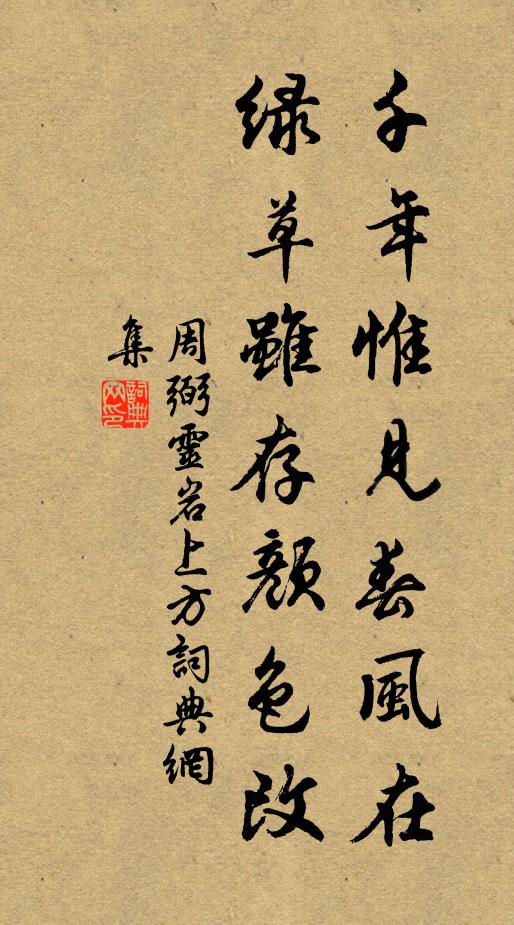 千年惟見春風在
绿草雖存顏色改
周弼靈岩上方詞典網
集
詞典
网印